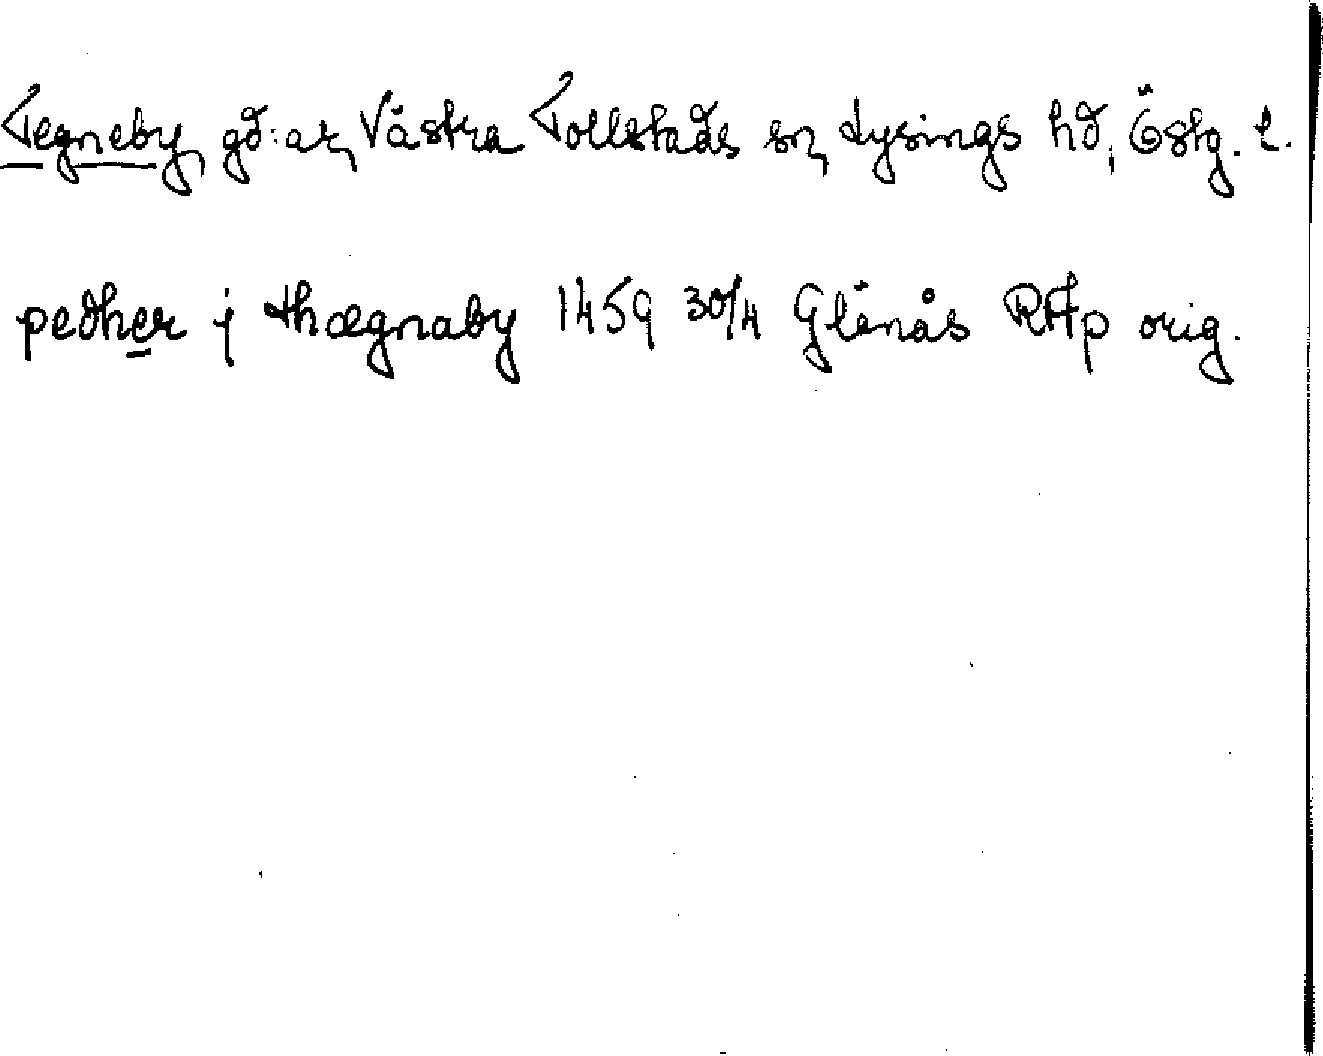 Tegneby, gd:ar, Västra Tollstads sn, Lysings hd, Östg. l.
pedher j thægnaby 1459 30/4 Glänås RAp orig.